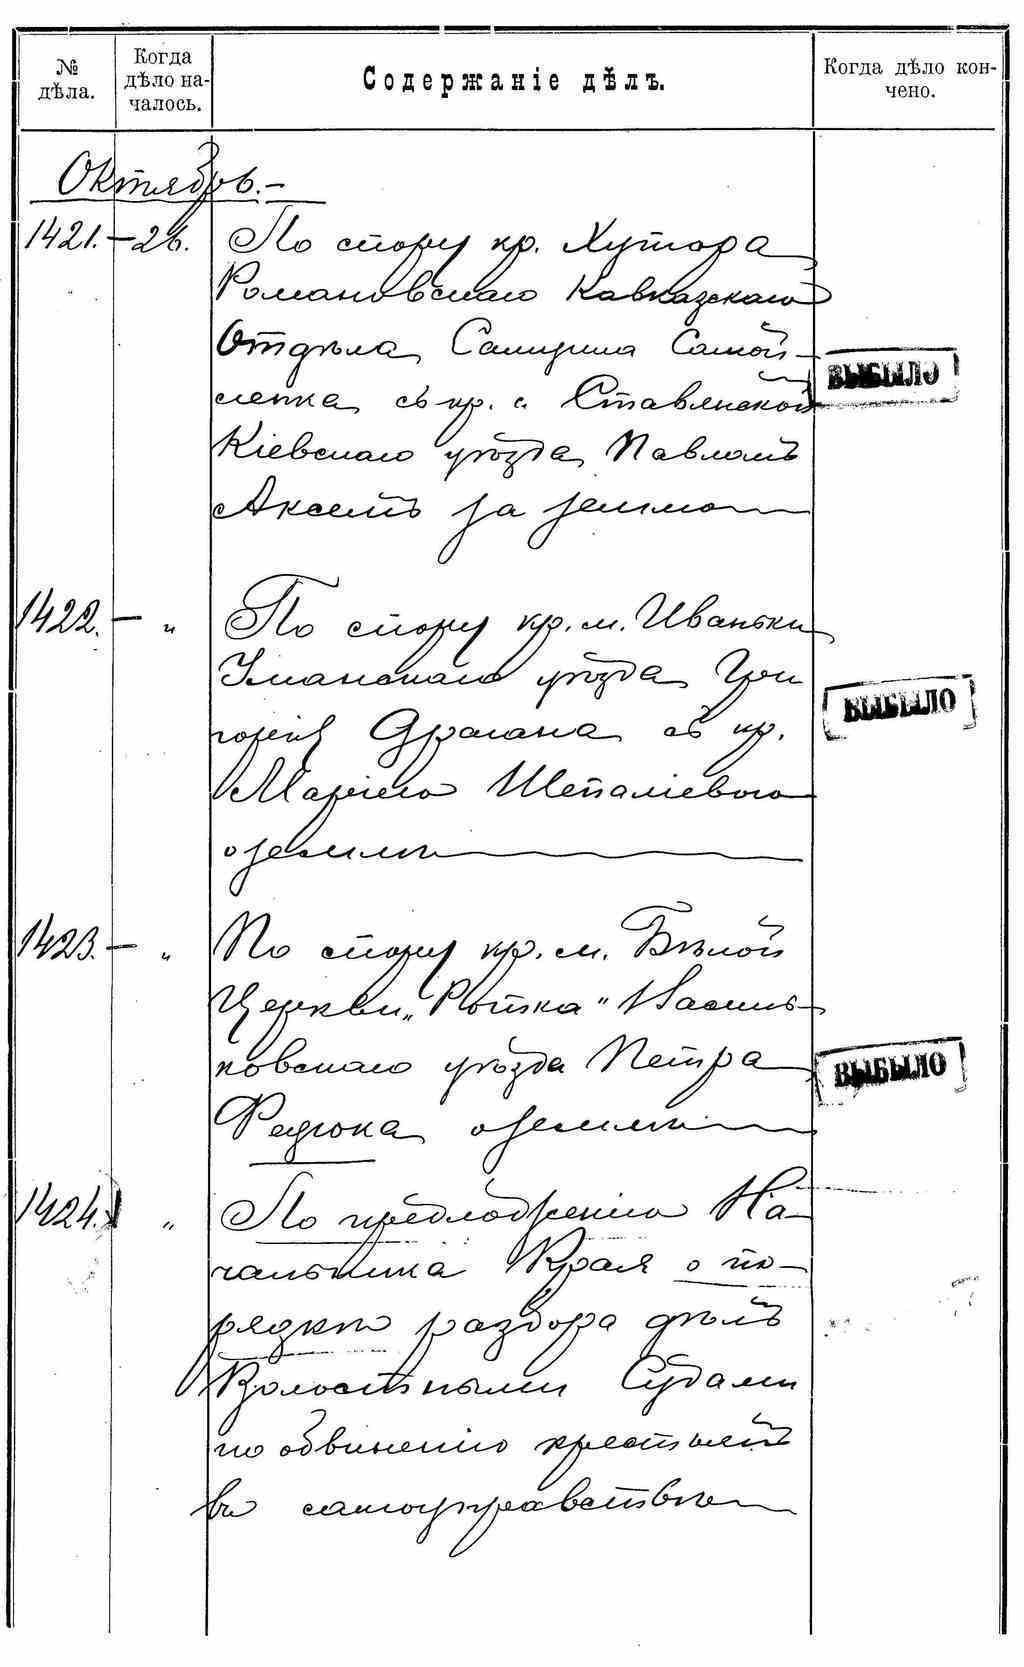 № дѣла.
Когда дѣло началось.
Содержаніе дѣлъ.
Когда дѣло кончено.
Октябрь.-
1421. - 26. По спору кр. Хутора
Романовскаго Кавказскаго
Отдѣла Самой-
ленка съ кр. с. Ставянской
ВЫБЫЛО
Кіевскаго уѣзда Павломъ
за землю
1422. - " По спору кр. м. Иваньки
Уманскаго уѣзда Гри
горія Драгана съ кр.
ВЫБЫЛО
Маріею
о землѣ
1423. - " По спору кр. м. Бѣлой
Церкви „Ротка" Василь-
ковскаго уѣзда Петра
ВЫБЫЛО
Федюка о землѣ
1424. " По предложенію На-
чальника Края о по-
рядкѣ разбора дѣлъ
Волостными Судами
по обвиненію крестьянъ
въ самоуправствѣ